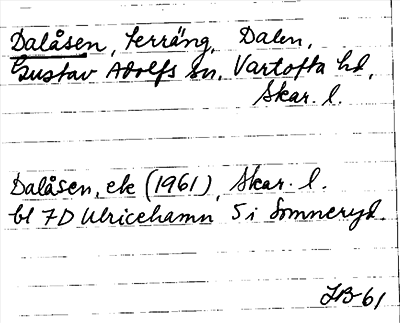 Dalåsen, terräng, Dalen,
Gustav Adolfs sn, Vartofta hd,
Skar. l.
Dalåsen, ek (1961), Skar. l.
bl 7D Ulricehamn 5 i Somneryd.
JB-61